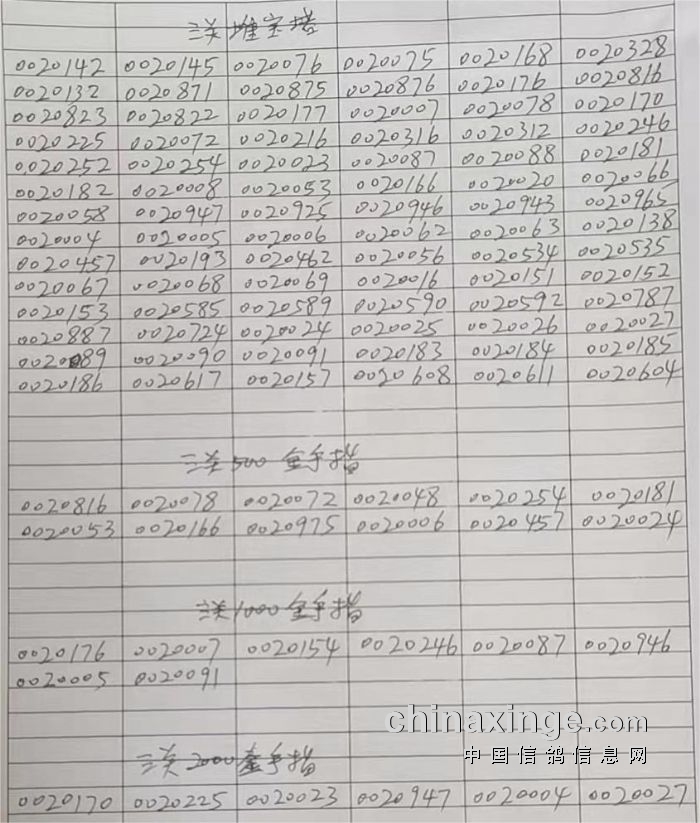 三关堆宝塔
0020142 0020145 0020076 0020075 0020168 0020328
0020132 0020871 0020875 0020876 0020176 0020816
0020823 0020822 0020177 0020007 0020078 0020170
0020225 0020072 0020216 0020316 0020312 0020246
0020252 0020254 0020023 0020087 0020088 0020181
0020182 0020008 0020053 0020166 0020020 0020066
0020058 0020947 0020925 0020946 0020943 0020965
0020004 0020005 0020006 0020062 0020063 0020138
0020457 0020193 0020462 0020056 0020534 0020535
0020067 0020068 0020069 0020016 0020151 0020152
0020153 0020585 0020589 0020590 0020592 0020787
0020887 0020724 0020024 0020025 0020026 0020027
0020089 0020090 0020091 0020183 0020184 0020185
0020186 0020617 0020157 0020608 0020611 0020604
三关500金手指
0020816 0020078 0020072 0020048 0020254 0020181
0020053 0020166 0020975 0020006 0020457 0020024
三关1000金手指
0020176 0020007 0020154 0020246 0020087 0020946
0020005 0020091
三关2000金手指
0020170 0020225 0020023 0020947 0020004 0020027
chinaxinge.com
中国信鸽信息网